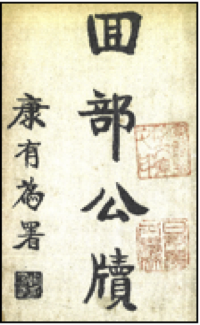 回部公牘
康有為署